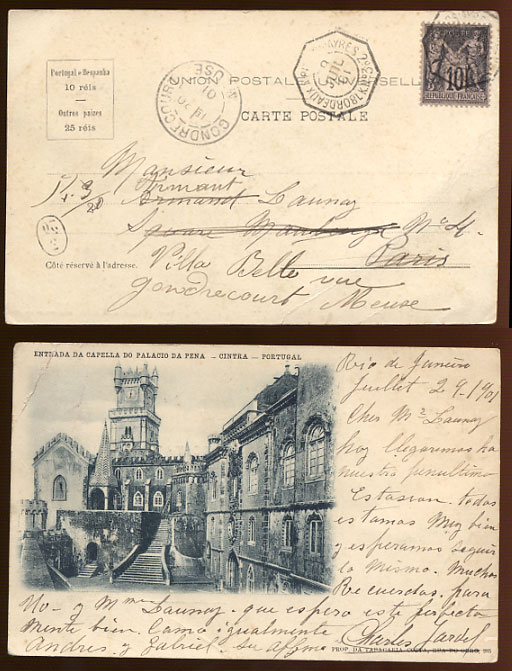 Portugal e Hespanha
10 réis
Outros paizes
25 réis
UNION POSTALE UNIVERSELLE
CARTE POSTALE
GONDRECOURT
MEUSE
10
REPUBLIQUE FRANÇAISE
Monsieur
Armand
Armand Launay
Square Maubeuge Nº 4
Paris
Villa Belle vue
Gondrecourt Meuse
Côté réservé à l'adresse.
ENTRADA DA CAPELLA DO PALACIO DA PENA – CINTRA – PORTUGAL
Rio de Janeiro
Juillet 29/1901
Cher Mr Launay
hoy llegaremos ha
nuestra penultima
Estasion todos
estamos muy bien
y esperamos seguir
lo mismo. Muchos
Recuerdos para
Mme Launay que espero este perfecta
mente bien. Como igualmente
Andres y Gabriel. Su affmo
Charles
PROP. DA TABACARIA COSTA, RUA DO OURO, 295